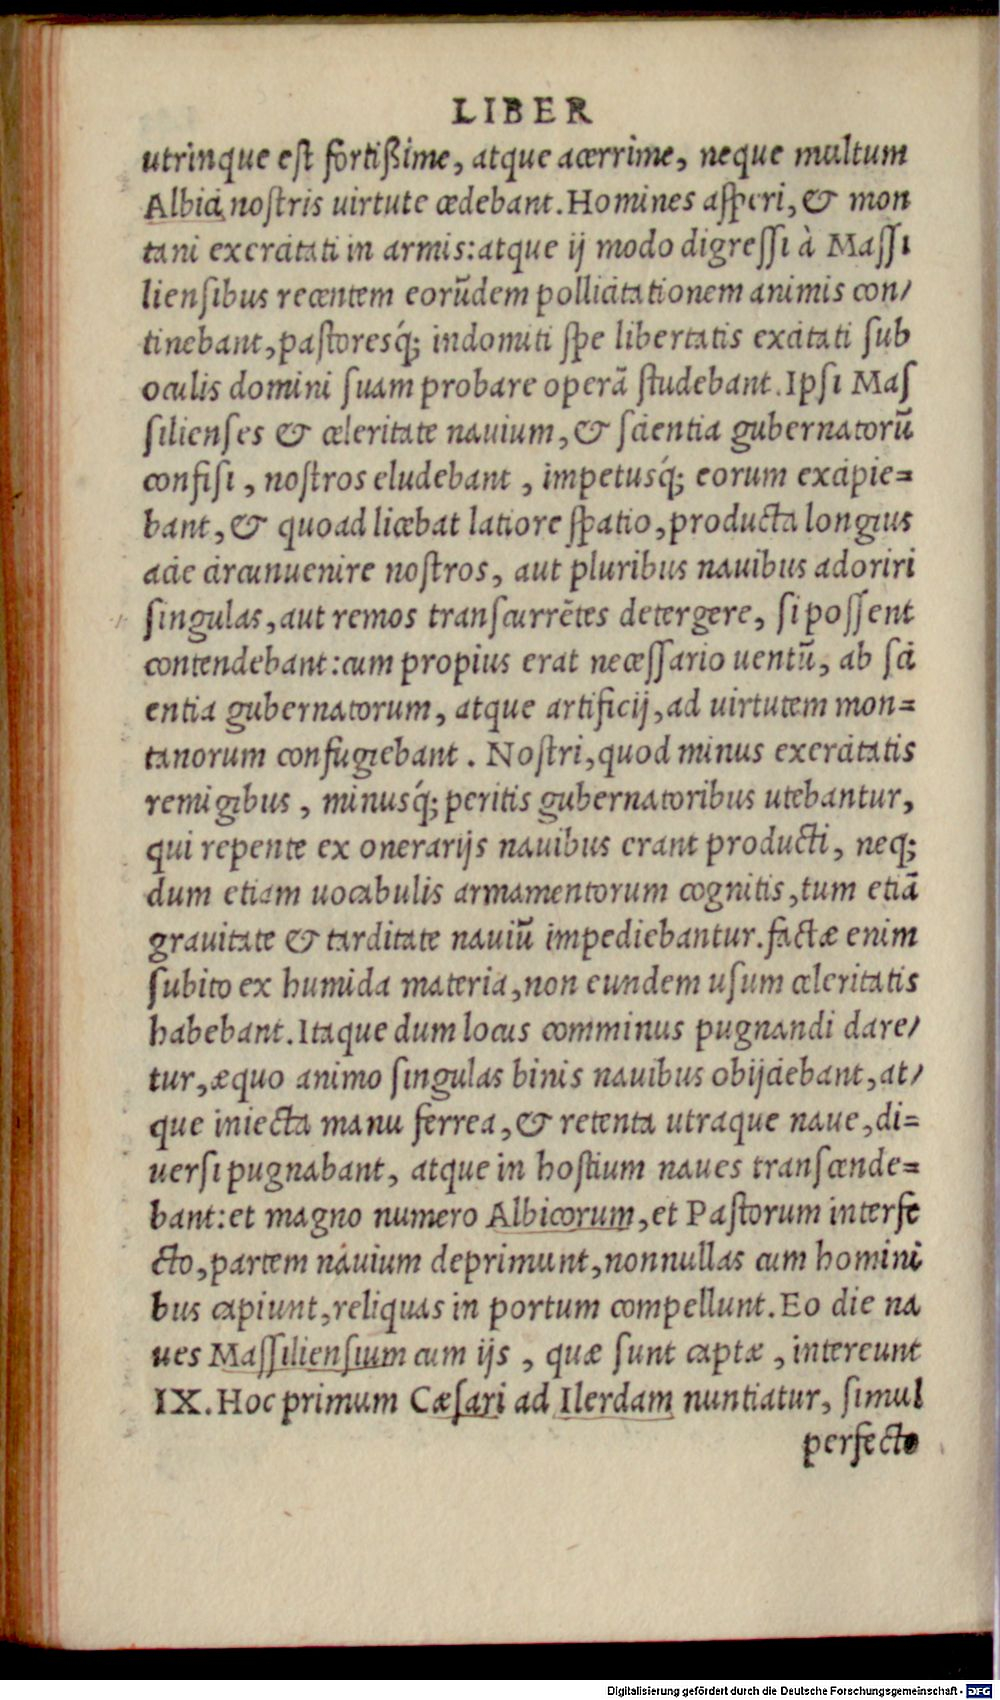 LIBER
utrinque est fortißime, atque acerrime, neque multum
Albici nostris uirtute cedebant. Homines asperi, & mon
tani exercitati in armis: atque ij modo digressi à Massi
liensibus recentem eorũdem pollicitationem animis con/
tinebant, pastoresq́; indomiti spe libertatis excitati sub
oculis domini suam probare operã studebant. Ipsi Mas
silienses & celeritate nauium, & scientia gubernatorũ
confisi, nostros eludebant, impetusq́; eorum excipie=
bant, & quoad licebat latiore spatio, producta longius
acie circunuenire nostros, aut pluribus nauibus adoriri
singulas, aut remos transcurrẽtes detergere, si possent
contendebant: cum propius erat necessario uentũ, ab sci
entia gubernatorum, atque artificij, ad uirtutem mon=
tanorum confugiebant. Nostri, quod minus exercitatis
remigibus, minusq́; peritis gubernatoribus utebantur,
qui repente ex onerarijs nauibus erant producti, neq;
dum etiam uocabulis armamentorum cognitis, tum etiã
grauitate & tarditate nauiũ impediebantur. factæ enim
subito ex humida materia, non eundem usum celeritatis
habebant. Itaque dum locus comminus pugnandi dare/
tur, æquo animo singulas binis nauibus obijciebant, at/
que iniecta manu ferrea, & retenta utraque naue, di=
uersi pugnabant, atque in hostium naues transcende=
bant: et magno numero Albicorum, et Pastorum interfe
cto, partem nauium deprimunt, nonnullas cum homini
bus capiunt, reliquas in portum compellunt. Eo die na
ues Massiliensium cum ijs, quæ sunt captæ, intereunt
IX. Hoc primum Cæsari ad Ilerdam nuntiatur, simul
perfecto
Digitalisierung gefördert durch die Deutsche Forschungsgemeinschaft - DFG